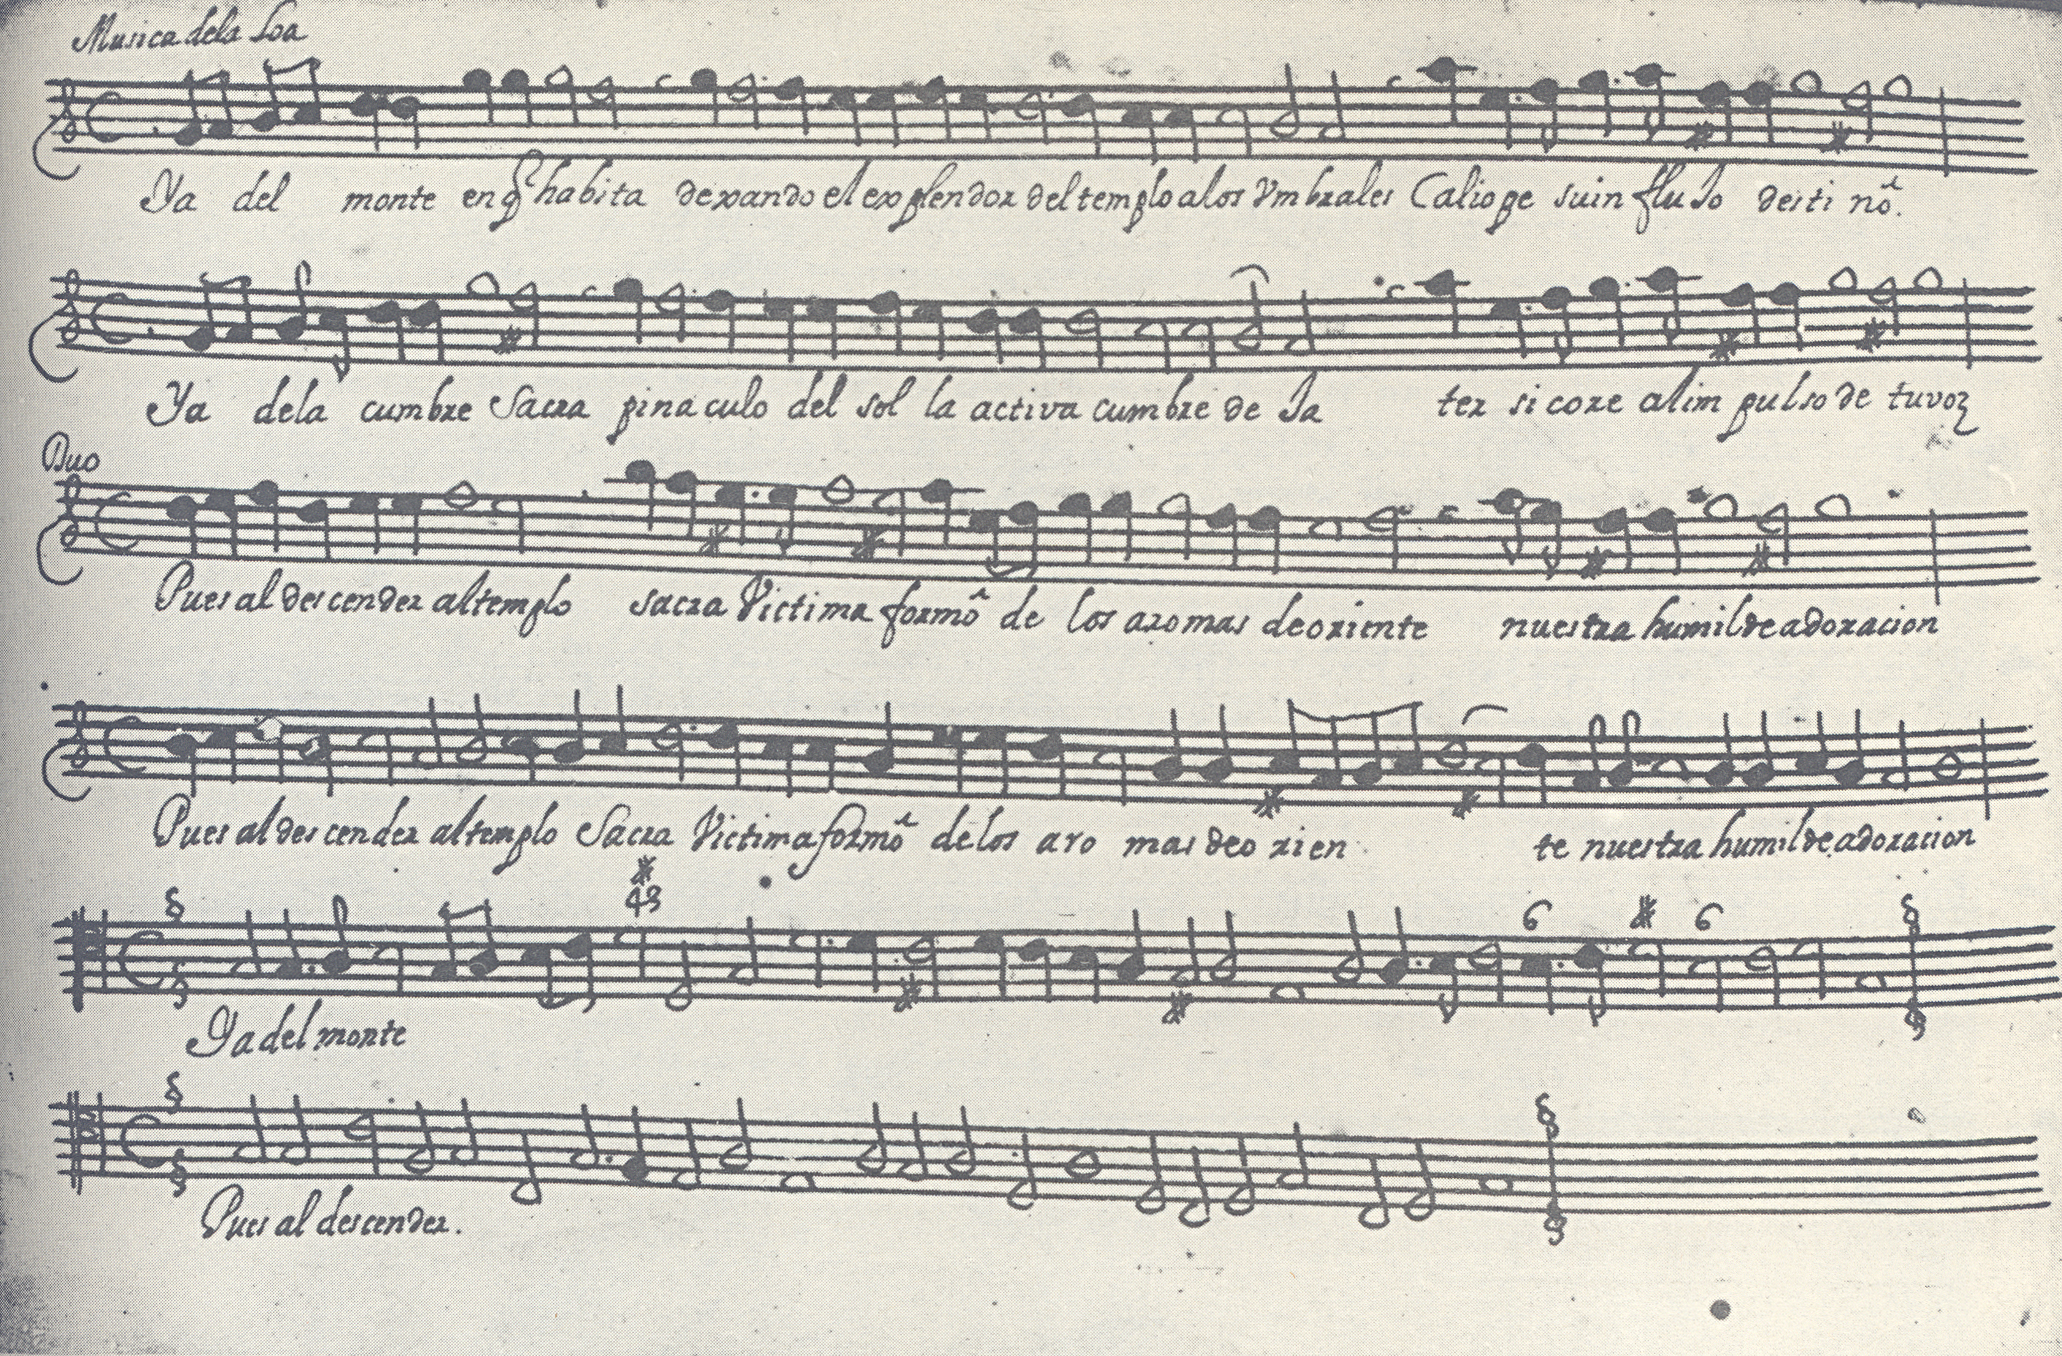 Musica dela Loa
Ya del monte en q̃ habita dexando el explendor del templo a los Vmbrales Caliope su influjo destinó.
Ya dela cumbre Sacra pinaculo del sol la activa cumbre deja tersicore al impulso de tu voz
Duo
Pues al descender al templo sacra Victima formó de los aromas de oriente nuestra humilde adoracion
Pues al descender al templo Sacra Victima formó de los aromas de orien te nuestra humilde adoracion
43
6 6
Ya del monte
Pues al descender.